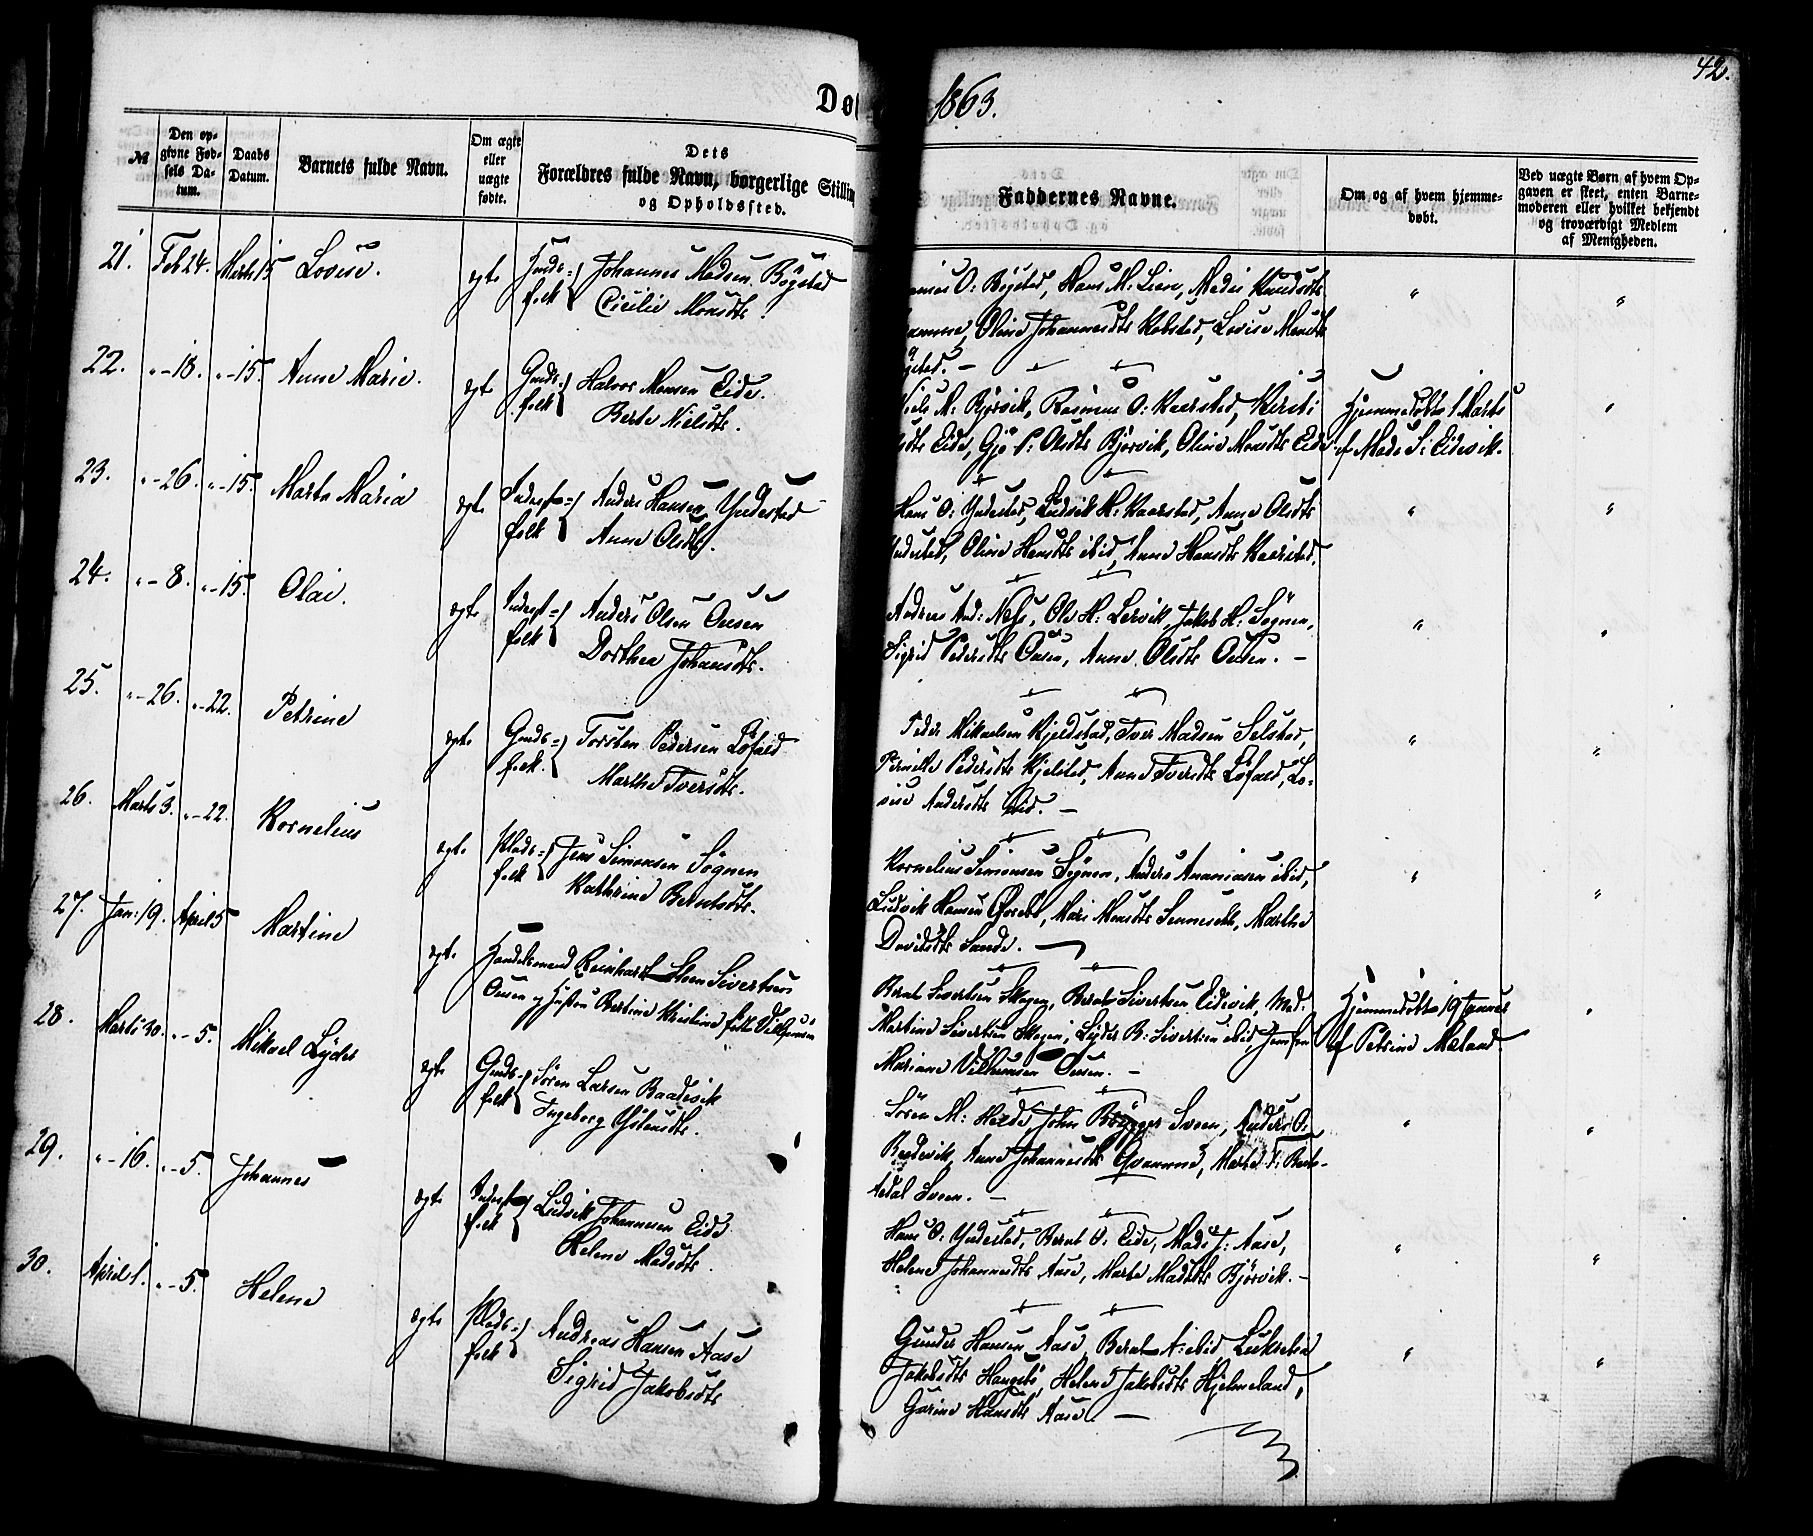 42.
1863.
№
Den op-
givne Fød-
sels Da-
tum.
Daabs
Datum.
Barnets fulde Navn.
Om ægte
eller
uægte
fødte.
Dets
Forældres fulde Navn, borgerlige
og Opholdssted.
Faddernes Navne.
Om og af hvem hjemme-
døbt.
Ved uægte Børn af hvem Op-
gaven er skeet, enten Barne-
moderen eller hvilket bekjendt
og troværdigt Medlem
af Menigheden.
21. Feb 24. Marts 15 Lovise. egt. Gmds= folk Johannes Madsen Bögstad
Cicilie Monsdtr.
O: Bögstad, Hans M: Lien, Madsi Knudsdtr
Oline Johannesdtr Kobstad, Lovise Monsdtr
"
"
22. " - 18. " - 15. Anne Marie. egt Gmds= folk Halvor Monsen Eide.
Berte Nielsdtr.
Niels M: Bjørvik, Rasmus O: Kaarstad, Kirsti
Eide, Gjø P: Olsdtr Bjørvik, Oline Monsdtr Eide
Hjemmedøbt 1 Marts
af Mads S: Eidevik.
"
23. " - 26. " - 15. Marta Maria egt. Inderst= folk Anders Hansen Yndestad
Anne Olsdtr.
Hans O: Yndestad, Ludvik H: Kaarstad, Anne Olsdtr
Yndestad, Oline Hansdtr ibid, Anne Hansdtr Kaarstad.
"
"
24. " - 8. " - 15. Olai. egt. Inderst= folk Anders Olsen Ousen
Dorthea Johansdtr.
Andreas And: Næss, Ole H: Lervik, Jakob H: Sögnen,
Sigrid Pedersdtr Ousen, Anne Olsdtr Ousen. -
"
"
25. " - 26. " - 22. Petrine egt. Gmds= folk. Torsten Pedersen Löfald
Marthe Iversdtr.
Peder Mikaelsen Kjelstad, Iver Madsen Selstad,
Pernille Pedersdtr Kjelstad, Anne Iversdtr Löfald, Lo=
vise Andersdtr ibid. -
"
"
26. Marts 3. " - 22. Kornelius egt. Plads= folk Jens Simonsen Sögnen
Kathrine Berntsdtr.
Kornelius Simonsen Sögnen, Anders Ananiasen ibid,
Ludvik Hansen Mari Monsdtr Marthe
Davidsdtr Sande. -
"
"
27. Jan: 19. April 5 Martine egt. Handelsmand Reinhart Steen Sivertsen
Ousen og Hustru Bertine Kristine født Vilhjemsen
Bernt Sivertsen Skogen, Bernt Sivertsen Eidevik, Mad.
Martine Sivertsen Skogen, Lyder B: Sivertsen ibid, Jomfru
Mariane Villumsen Ousen. -
Hjemmedøbt 19 Januar
af Petrine Mæland.
"
28. Marts 30. " - 5. Mikael Lyder egt. Gmds= folk Sören Larsen Baadsvik
Ingeborg Östensdtr.
Sören M: Helde, John Svoen, Anders O:
Anne Johannesdtr Qvamme, Marthe
Svoen. -
"
"
29. " - 16. " - 5. Johannes egt. Inderst= folk Ludvik Johannesen Eide.
Helene Madsdtr.
Hans O: Yndestad, Bernt O: Eide, Mads J: Aase,
Helene Johannesdtr Aase, Marte Madsdtr Bjørvik. -
"
"
30. April 1. " - 5. Helene egt. Plads= folk Andreas Hansen Aase
Sigrid Jakobsdtr
Gunder Hansen Aase, Bernt A: ibid, Luksetia
Jakobsdtr Helene Jakobsdtr Hjelmeland,
Gurine Hansdtr Aase. -
"
"